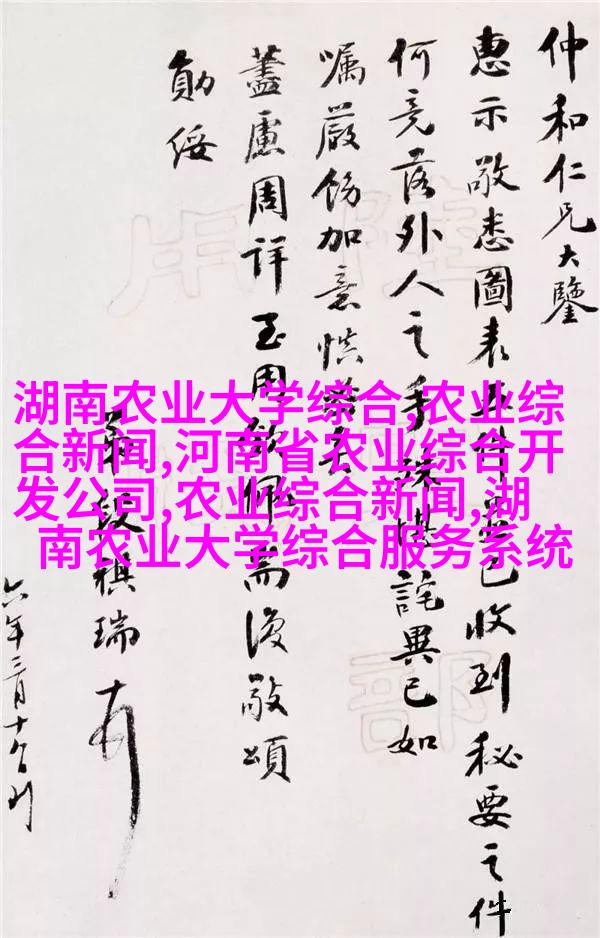 仲和仁兄大鑒
惠示敬悉圖表五件已收到秘要之件
何竟落外人之手殊堪詫異已如
囑嚴飭加意慎
藎慮周詳至佩耑復敬頌
勛綏
段祺瑞
六年三月十日
湖南农业大学综合,农业综
合新闻,河南省农业综合开
发公司,农业综合新闻,湖
南农业大学综合服务系统